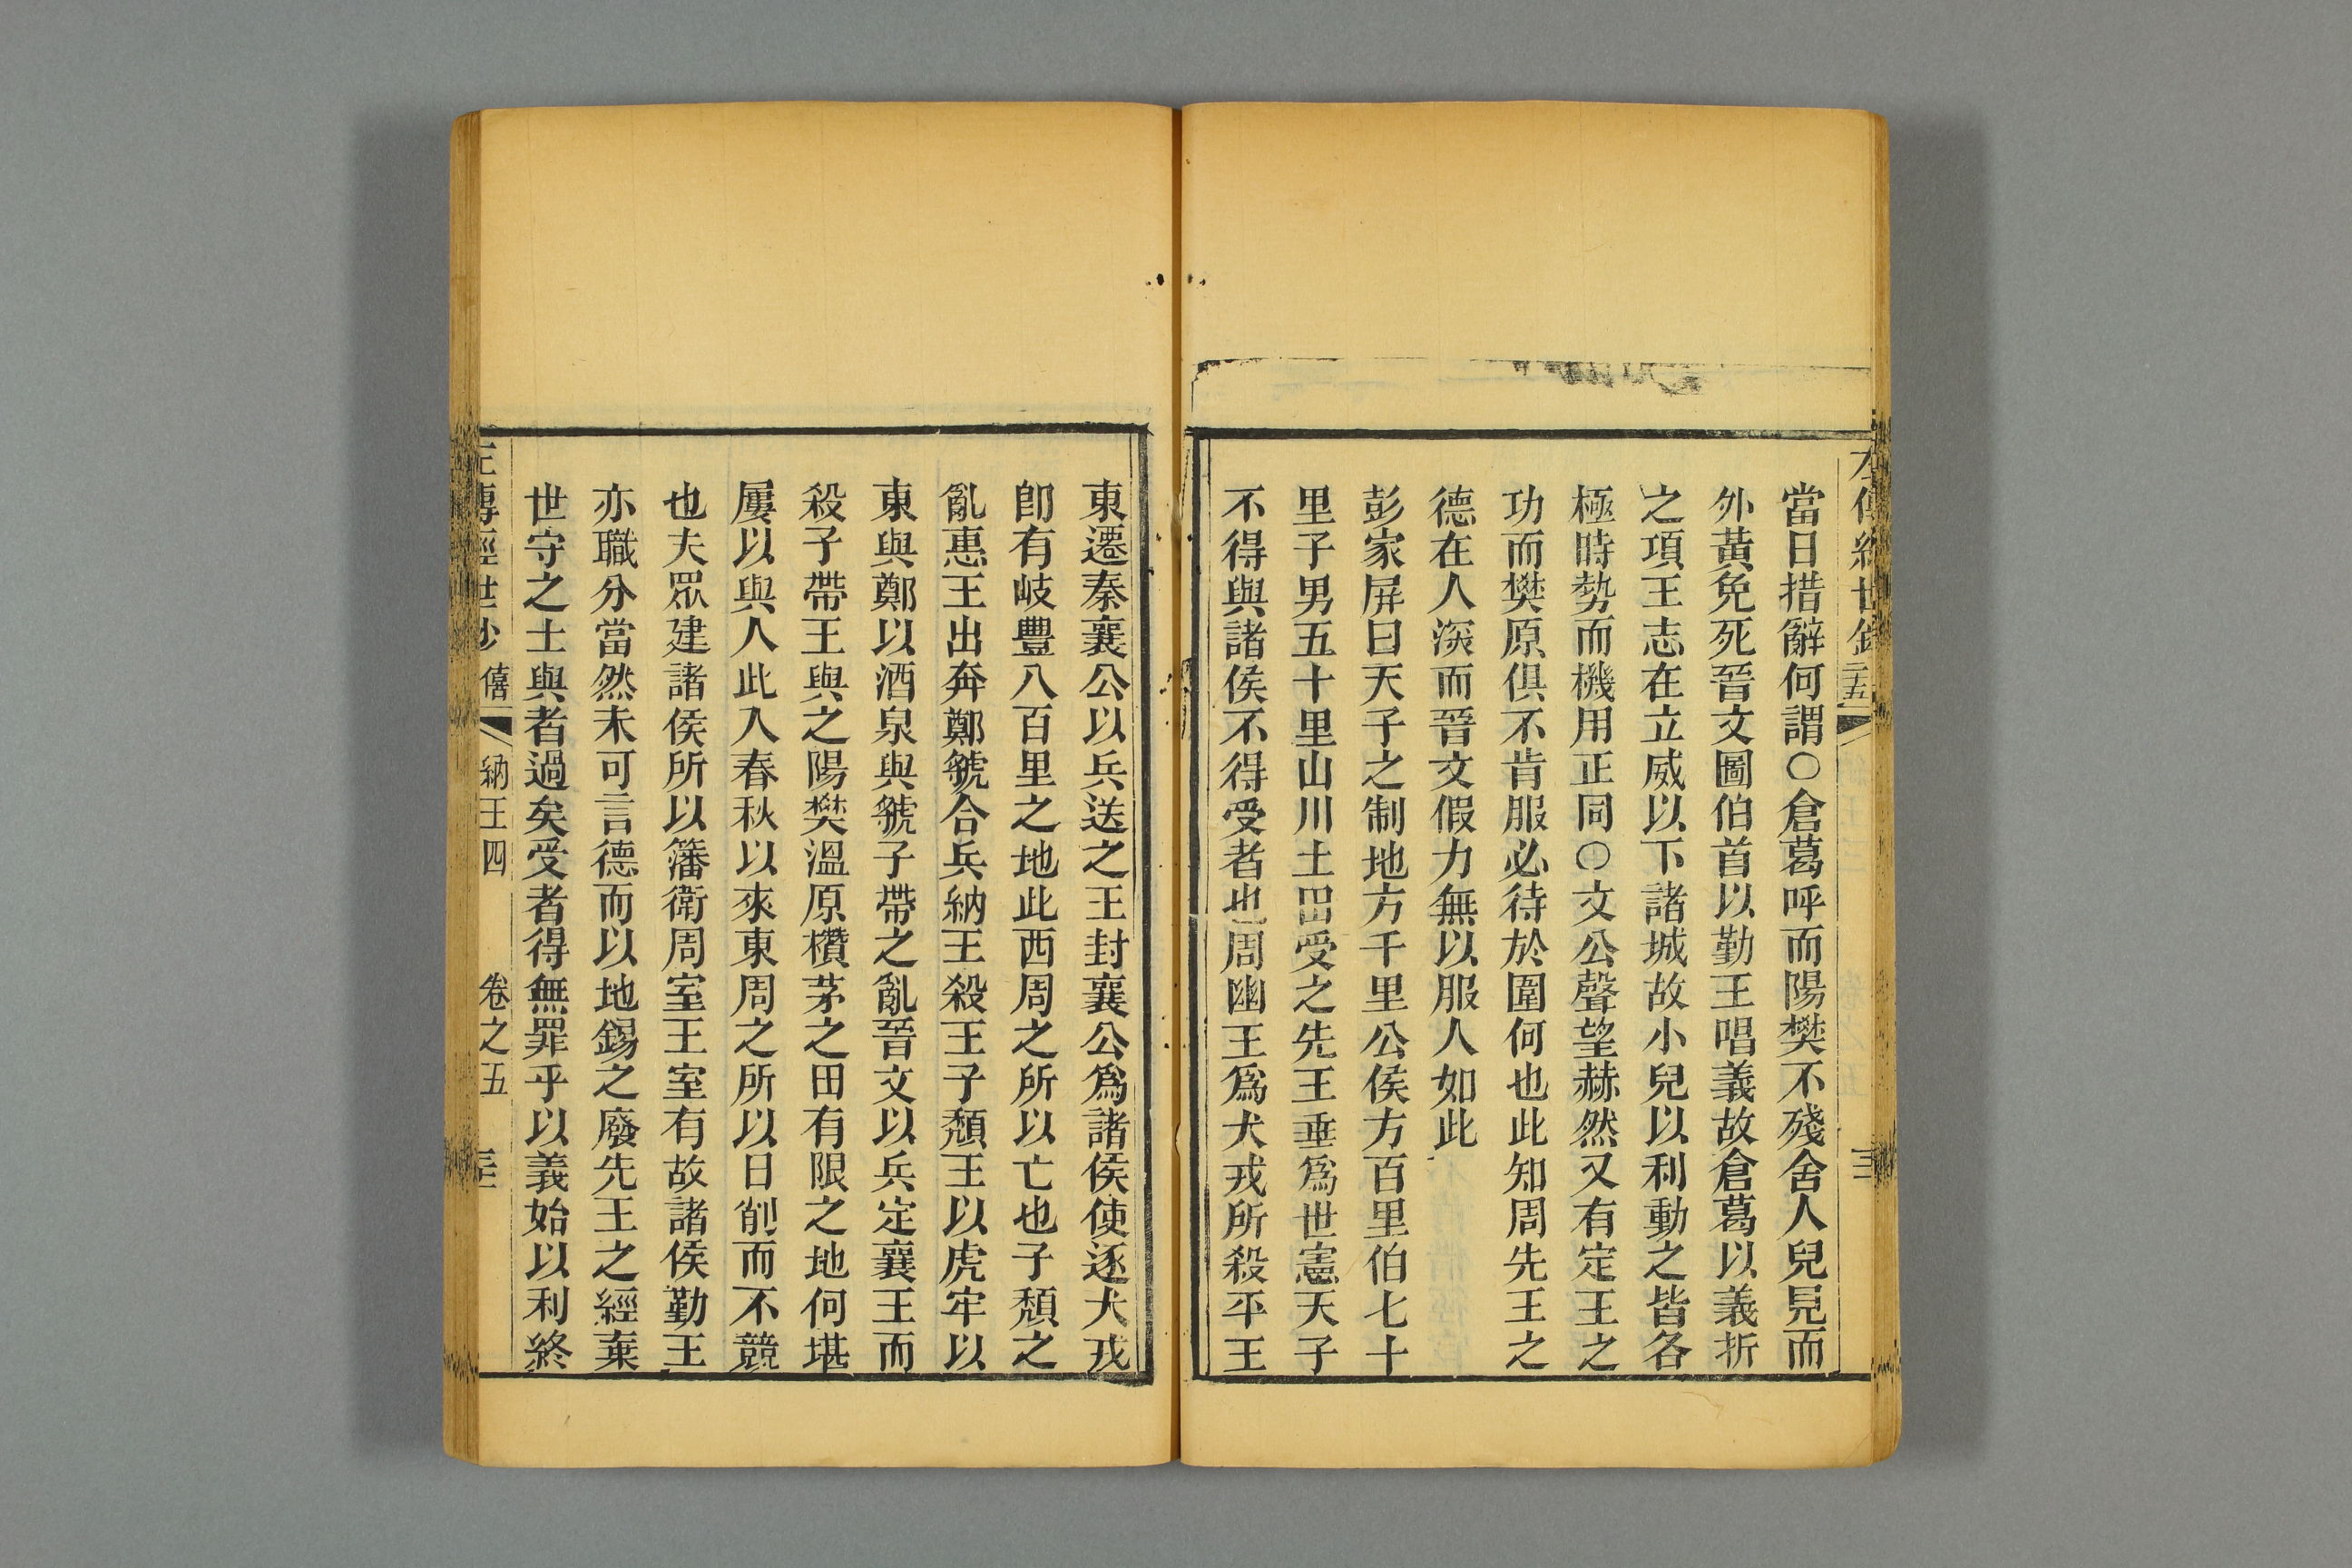 當日措辭何謂〇倉葛呼而陽樊不殘舍人兒見而
外黃免死晉文圖伯首以勤王唱義故倉葛以義折
之項王志在立威以下諸城故小兒以利動之皆各
極時勢而機用正同〇文公聲望赫然又有定王之
功而樊原俱不肯服必待於圍何也此知周先王之
德在人深而晉文假力無以服人如此
彭家屏曰天子之制地方千里公侯方百里伯七十
里子男五十里山川土田受之先王垂爲世憲天子
不得與諸侯不得受者也周幽王爲犬戎所殺平王
東遷秦襄公以兵送之王封襄公爲諸侯使逐犬戎
卽有岐豐八百里之地此西周之所以亡也子頹之
亂惠王出奔鄭虢合兵納王殺王子頹王以虎牢以
東與鄭以酒泉與虢子帶之亂晉文以兵定襄王而
殺子帶王與之陽樊溫原欑茅之田有限之地何堪
屢以與人此入春秋以來東周之所以日削而不競
也夫眾建諸侯所以籓衛周室王室有故諸侯勤王
亦職分當然未可言德而以地錫之廢先王之經棄
世守之土與者過矣受者得無罪乎以義始以利終
左傳經世鈔 僖 納王四 卷之五